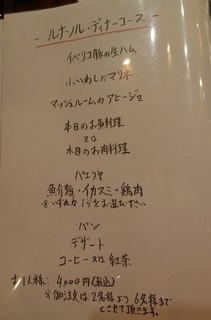 - ルナソル・ディナーコース -
イベリコ豚の生ハム
小いわしのマリネ
マッシュルームのアヒージョ
本日のお魚料理
又は
本日のお肉料理
パエリヤ
魚介類・イカスミ・鶏肉
※いずれか1つをお選び下さい
パン
デザート
コーヒー又は紅茶
お1人様: 4,000円(税込)
※御注文は2名様より6名様まで
とさせて頂きます。